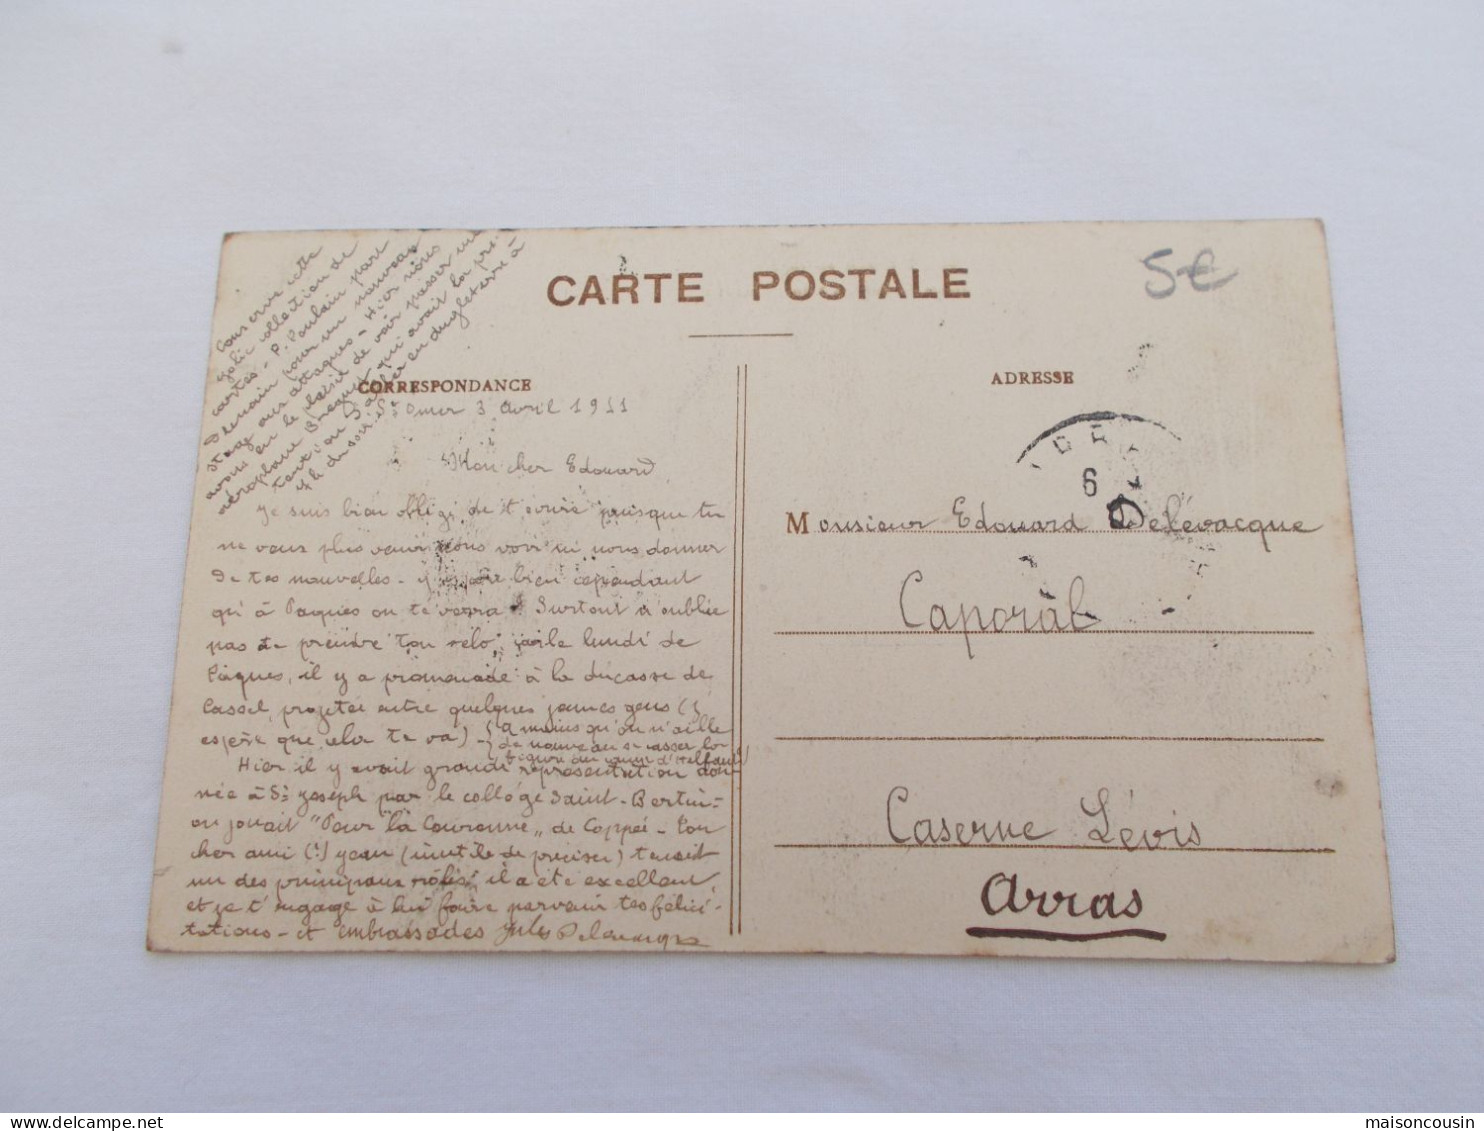 Conserve cette
jolie collection de
cartes - P. Poulain part
Demain pour un nouveau
stage aux attaques - Hier nous
avons eu le plaisir de voir passer un
aéroplane Breguet qui avait la pré-
tention d'aller en Angleterre à
CARTE POSTALE
5€
CORRESPONDANCE
ADRESSE
St Omer 3 avril 1911
Mon cher Edouard
Je suis bien obligé de t'écrire puisque tu
ne veux plus venir nous voir ni nous donner
de tes nouvelles - J'espère bien cependant
qu'à Pâques on te verra. Surtout n'oublie
pas de prendre ton vélo, car le lundi de
Pâques, il y a promenade à la ducasse de
Cassel, projetée entre quelques jeunes gens (j'
espère que cela te va) - (à moins qu'on n'aille
de nouveau se casser la
figure au camp d'Helfaut)
Hier il y avait grande représentation don-
née à St Joseph par le collège Saint-Bertin -
on jouait "Pour la Couronne" de Coppée - Ton
cher ami (!) Jean (inutile de préciser) tenait
un des principaux rôles; il a été excellent
et je t'engage à lui faire parvenir tes félici-
tations - et embrassades Jules
6
Monsieur Edouard Delevacque
Caporal
Caserne Lévis
Arras
maisoncousin